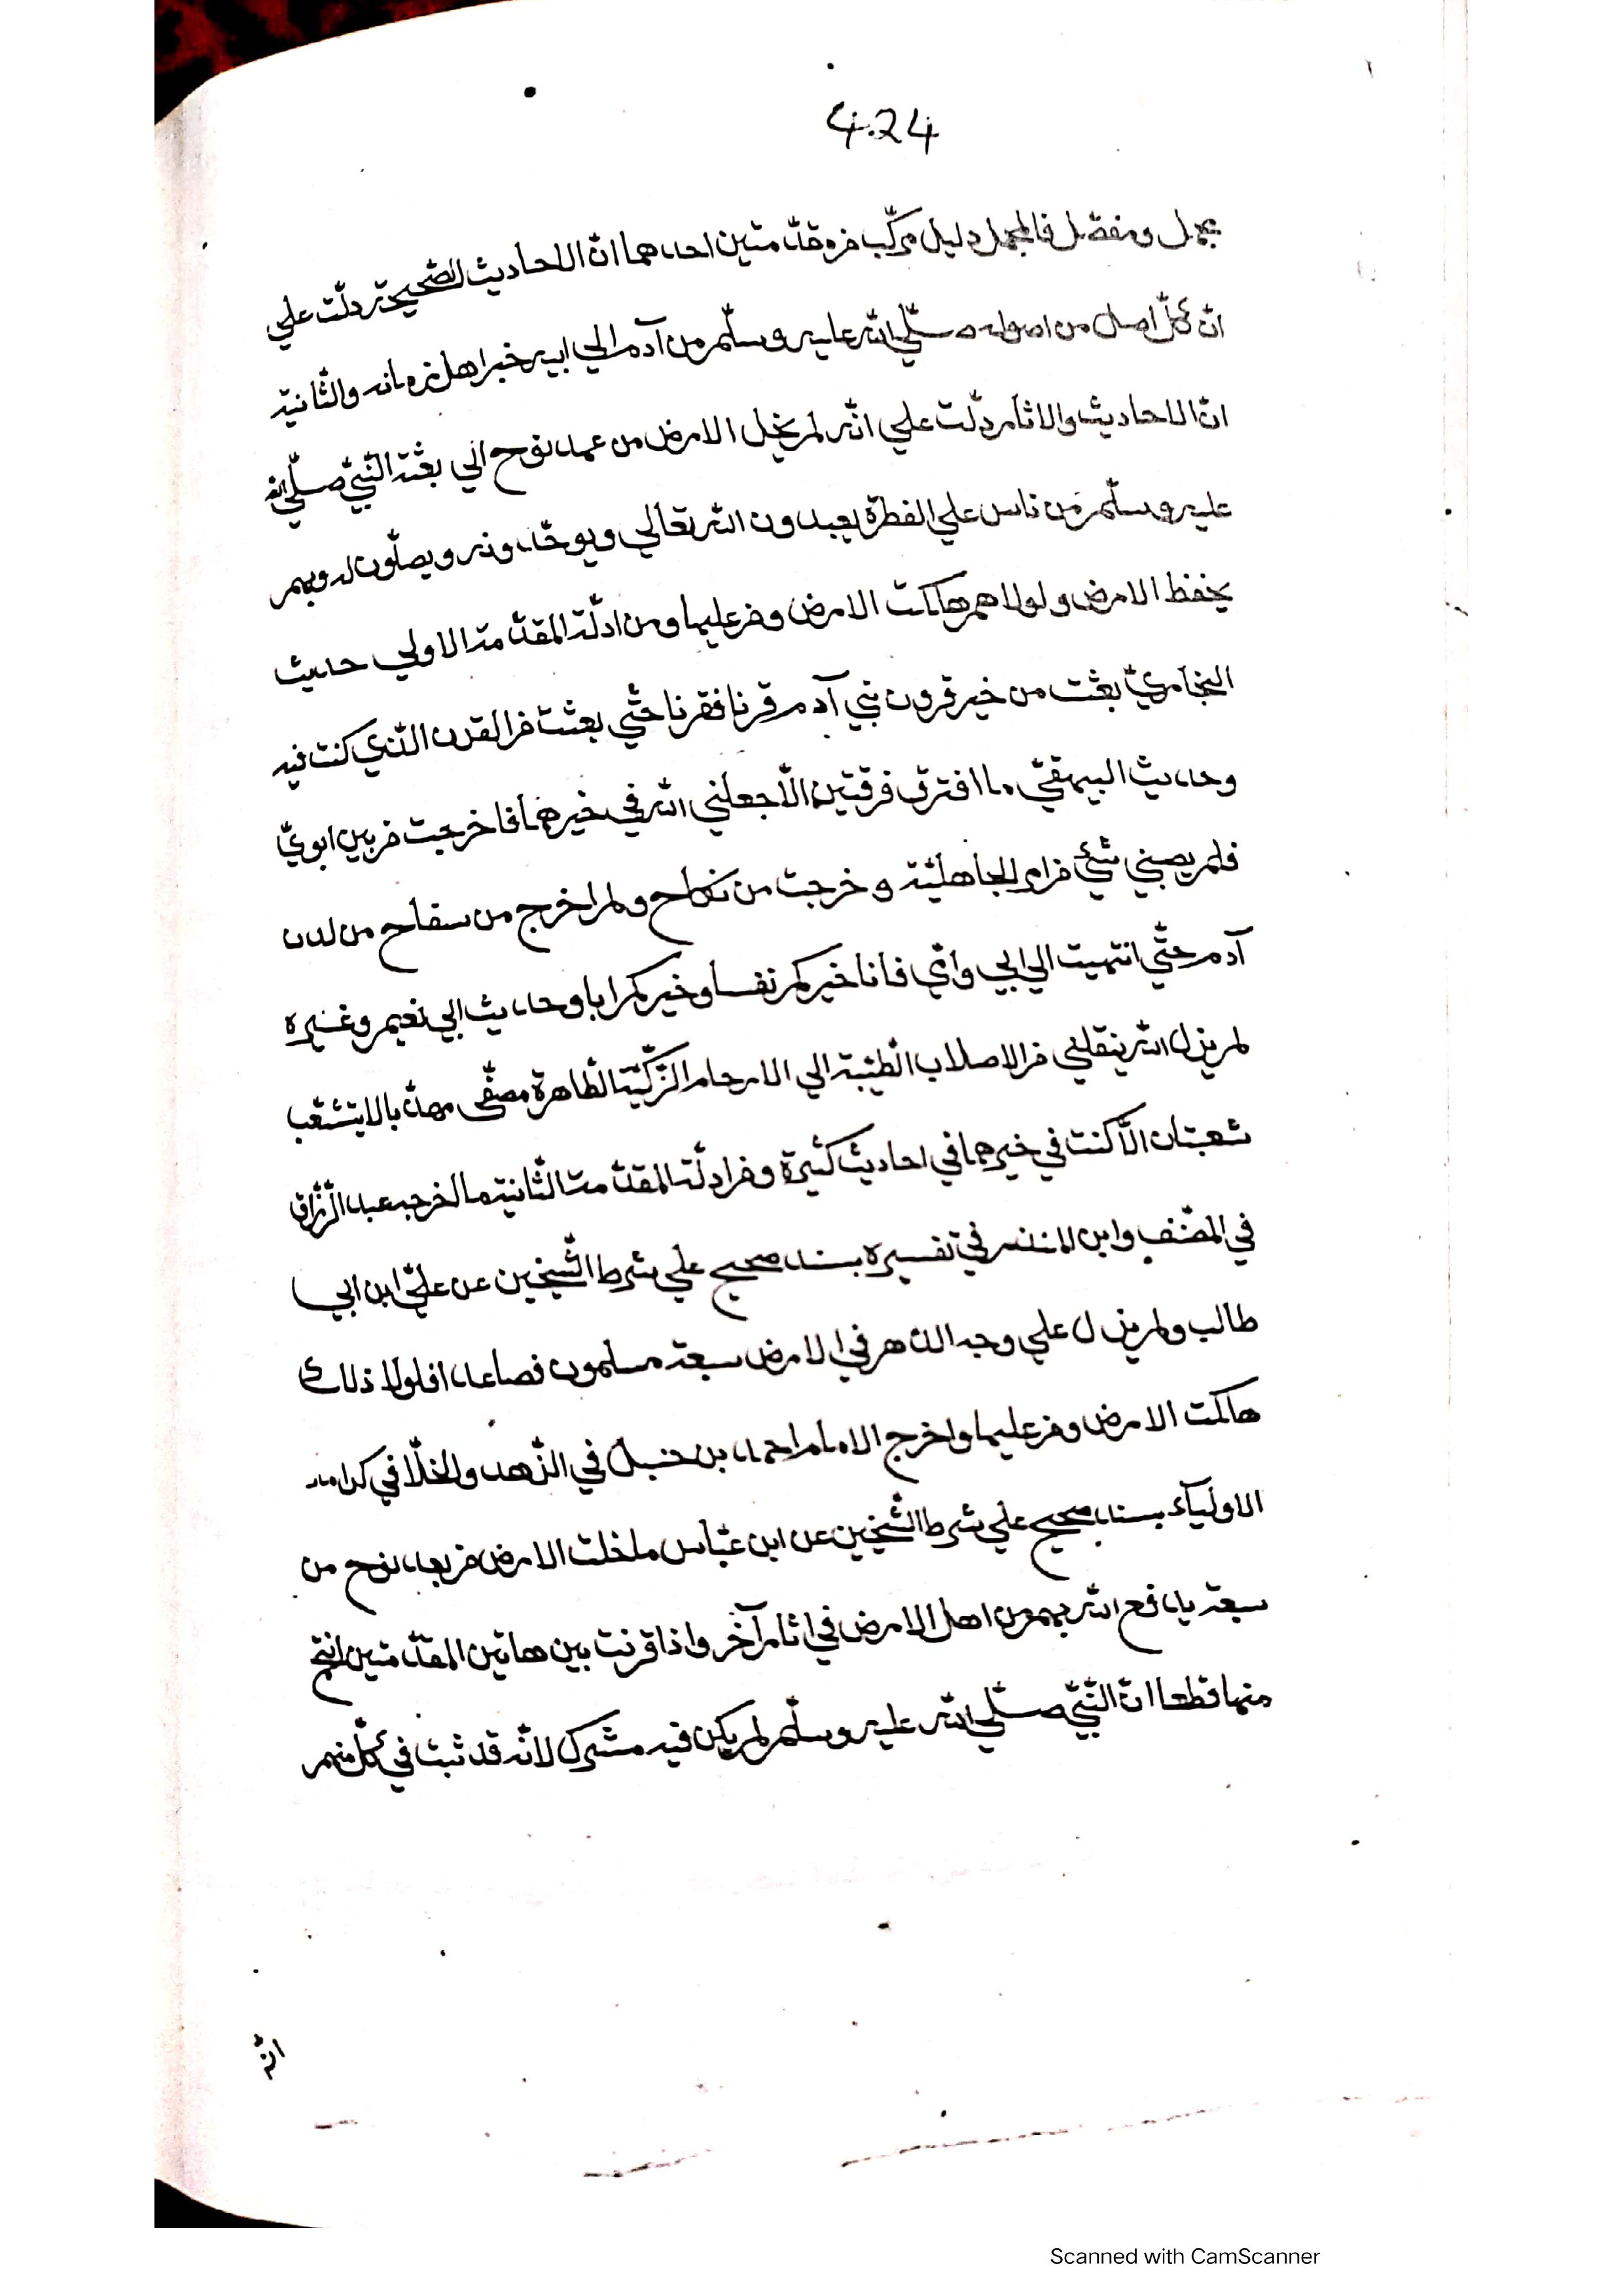 4.24
مجمل ومفصّل فالمجمل دليل مركّب من مقدّمتين احدهما انّ الاحاديث الصّحيحة دلّت علي
انّ كلّ اصل من اصوله صلّي الله عليه وسلّم من آدم الي ابيه خير اهل زمانه والثّانية
انّ الاحاديث والاثار دلّت علي انّه لم يخل الارض من عهد نوح الي بعثة النّبيّ صلّي الله
عليه وسلّم من ناس علي الفطرة يعبدون الله تعالي ويوحّدونه ويصلّون له وبهم
يحفظ الارض ولولاهم هلكت الارض ومن عليها ومن ادلّة المقدّمة الاولي حديث
البخاريّ بعثت من خير قرون بني آدم قرنا فقرنا حتّي بعثت من القرن الّذي كنت فيه
وحديث البيهقيّ ما افترق فرقتين الّا جعلني الله في خيرهما فاخرجت من بين ابويّ
فلم يصبني شئ من امر الجاهليّة وخرجت من نكاح ولم اخرج من سفاح من لدن
آدم حتّي انتهيت الي ابي وامّي فانا خيركم نفسا وخيركم ابا وحديث ابي نعيم وغيره
لم يزل الله ينقلني من الاصلاب الطّيّبة الي الارحام الزّكيّة الطّاهرة مصفّى مهذّبا لا يتشعّب
شعبتان الّا كنت في خيرهما في احاديث كثيرة ومن ادلّة المقدّمة الثّانية ما اخرجه عبد الرّزّاق
في المصنّف وابن المنذر في تفسيره بسند صحيح علي شرط الشّيخين عن عليّ ابن ابي
طالب ولم يزل علي وجه الدّهر في الارض سبعة مسلمون فصاعدا فلولا ذلك
هلكت الارض ومن عليها واخرج الامام احمد بن حنبل في الزّهد والخلّا في كرامه
الاولياء بسند صحيح علي شرط الشّيخين عن ابن عبّاس ما خلت الارض من بعد نوح من
سبعة يدافع الله بهم من اهل الارض في اثار آخر واذا قرنت بين هاتين المقدّمتين انتج
منها قطعا انّ النّبيّ صلّي الله عليه وسلّم لم يكن فيه مشرك لانّه قد ثبت في كلّ منهم
انّه
Scanned with CamScanner